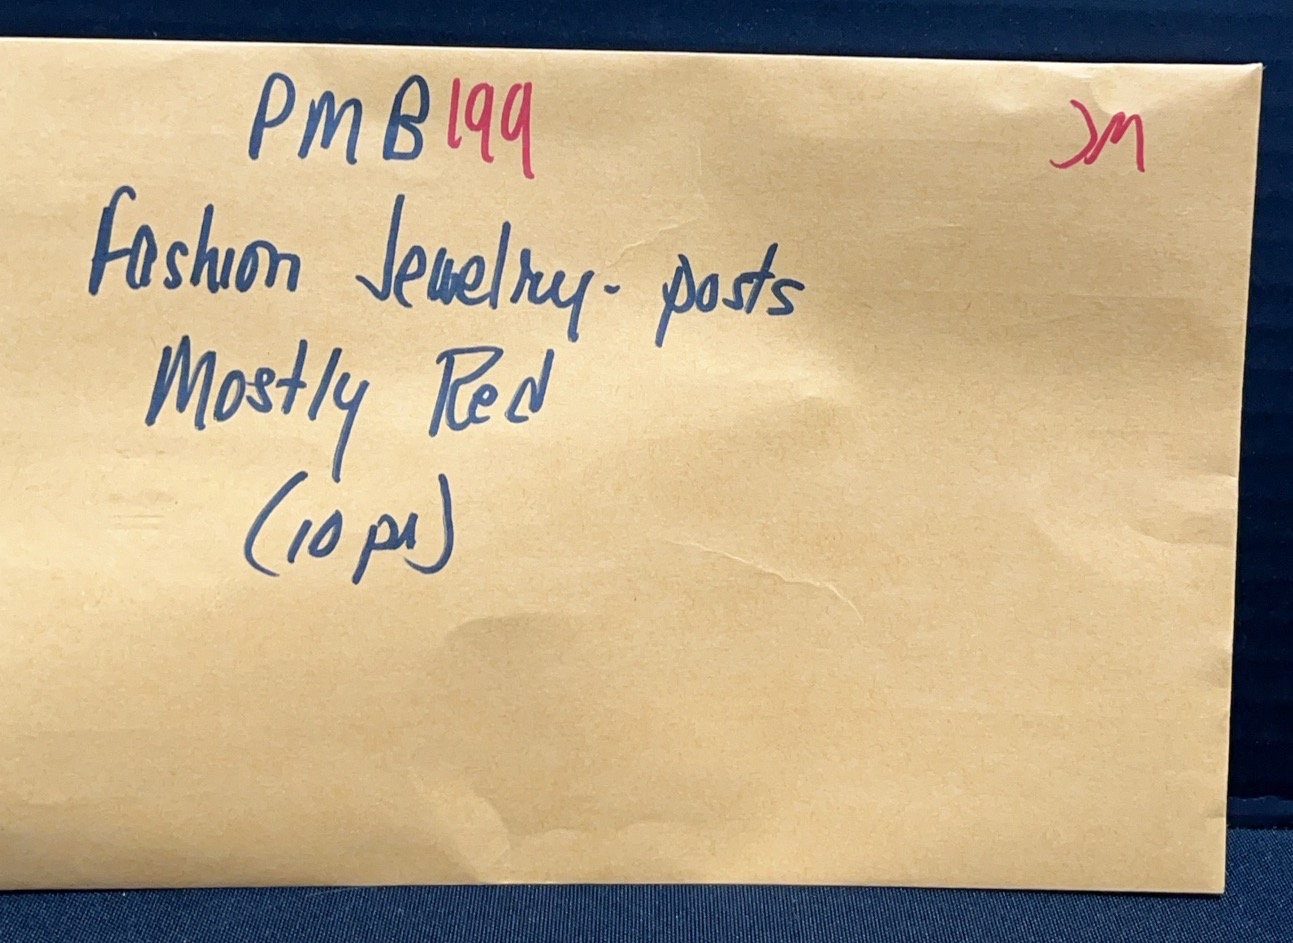 PMB199
JM
Fashion Jewelry - posts
Mostly Red
(10 pr)